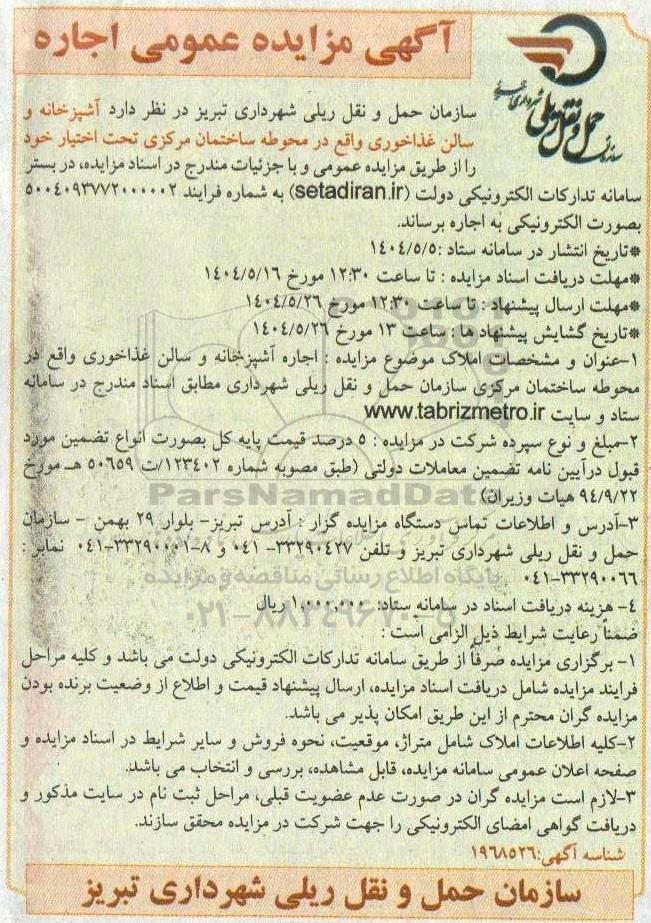 آگهی مزایده عمومی اجاره
سازمان حمل و نقل ریلی شهرداری تبریز
سازمان حمل و نقل ریلی شهرداری تبریز در نظر دارد آشپزخانه و
سالن غذاخوری واقع در محوطه ساختمان مرکزی تحت اختیار خود
را از طریق مزایده عمومی و با جزئیات مندرج در اسناد مزایده، در بستر
سامانه تدارکات الکترونیکی دولت (setadiran.ir) به شماره فرایند ۵۰۰۴۰۹۳۷۷۲۰۰۰۰۰۲
بصورت الکترونیکی به اجاره برساند.
*تاریخ انتشار در سامانه ستاد :۱۴۰۴/۵/۵
*مهلت دریافت اسناد مزایده : تا ساعت ۱۲:۳۰ مورخ ۱۴۰۴/۵/۱۶
*مهلت ارسال پیشنهاد : تا ساعت ۱۲:۳۰ مورخ ۱۴۰۴/۵/۲۶
*تاریخ گشایش پیشنهاد ها : ساعت ۱۳ مورخ ۱۴۰۴/۵/۲۶
۱-عنوان و مشخصات املاک موضوع مزایده : اجاره آشپزخانه و سالن غذاخوری واقع در
محوطه ساختمان مرکزی سازمان حمل و نقل ریلی شهرداری مطابق اسناد مندرج در سامانه
ستاد و سایت www.tabrizmetro.ir
۲-مبلغ و نوع سپرده شرکت در مزایده : ۵ درصد قیمت پایه کل بصورت انواع تضمین مورد
قبول درآیین نامه تضمین معاملات دولتی (طبق مصوبه شماره ۱۲۳۴۰۲/ت ۵۰۶۵۹ هـ مورخ
۹۴/۹/۲۲ هیات وزیران)
ParsNamadData
۳-آدرس و اطلاعات تماس دستگاه مزایده گزار : آدرس تبریز- بلوار ۲۹ بهمن - سازمان
حمل و نقل ریلی شهرداری تبریز و تلفن ۳۳۲۹۰۴۲۷- ۰۴۱ و ۸-۳۳۲۹۰۰۰۱-۰۴۱ نمابر :
۰۴۱-۳۳۲۹۰۰۶۶
پایگاه اطلاع رسانی مناقصه و مزایده
۴- هزینه دریافت اسناد در سامانه ستاد: ۱,۰۰۰,۰۰۰ ریال
۰۲۱-۸۸۳۴۹۶۷۰-۵
ضمناً رعایت شرایط ذیل الزامی است :
۱- برگزاری مزایده صرفاً از طریق سامانه تدارکات الکترونیکی دولت می باشد و کلیه مراحل
فرایند مزایده شامل دریافت اسناد مزایده، ارسال پیشنهاد قیمت و اطلاع از وضعیت برنده بودن
مزایده گران محترم از این طریق امکان پذیر می باشد.
۲-کلیه اطلاعات املاک شامل متراژ، موقعیت، نحوه فروش و سایر شرایط در اسناد مزایده و
صفحه اعلان عمومی سامانه مزایده، قابل مشاهده، بررسی و انتخاب می باشد.
۳-لازم است مزایده گران در صورت عدم عضویت قبلی، مراحل ثبت نام در سایت مذکور و
دریافت گواهی امضای الکترونیکی را جهت شرکت در مزایده محقق سازند.
شناسه آگهی:۱۹۶۸۵۲۶
سازمان حمل و نقل ریلی شهرداری تبریز